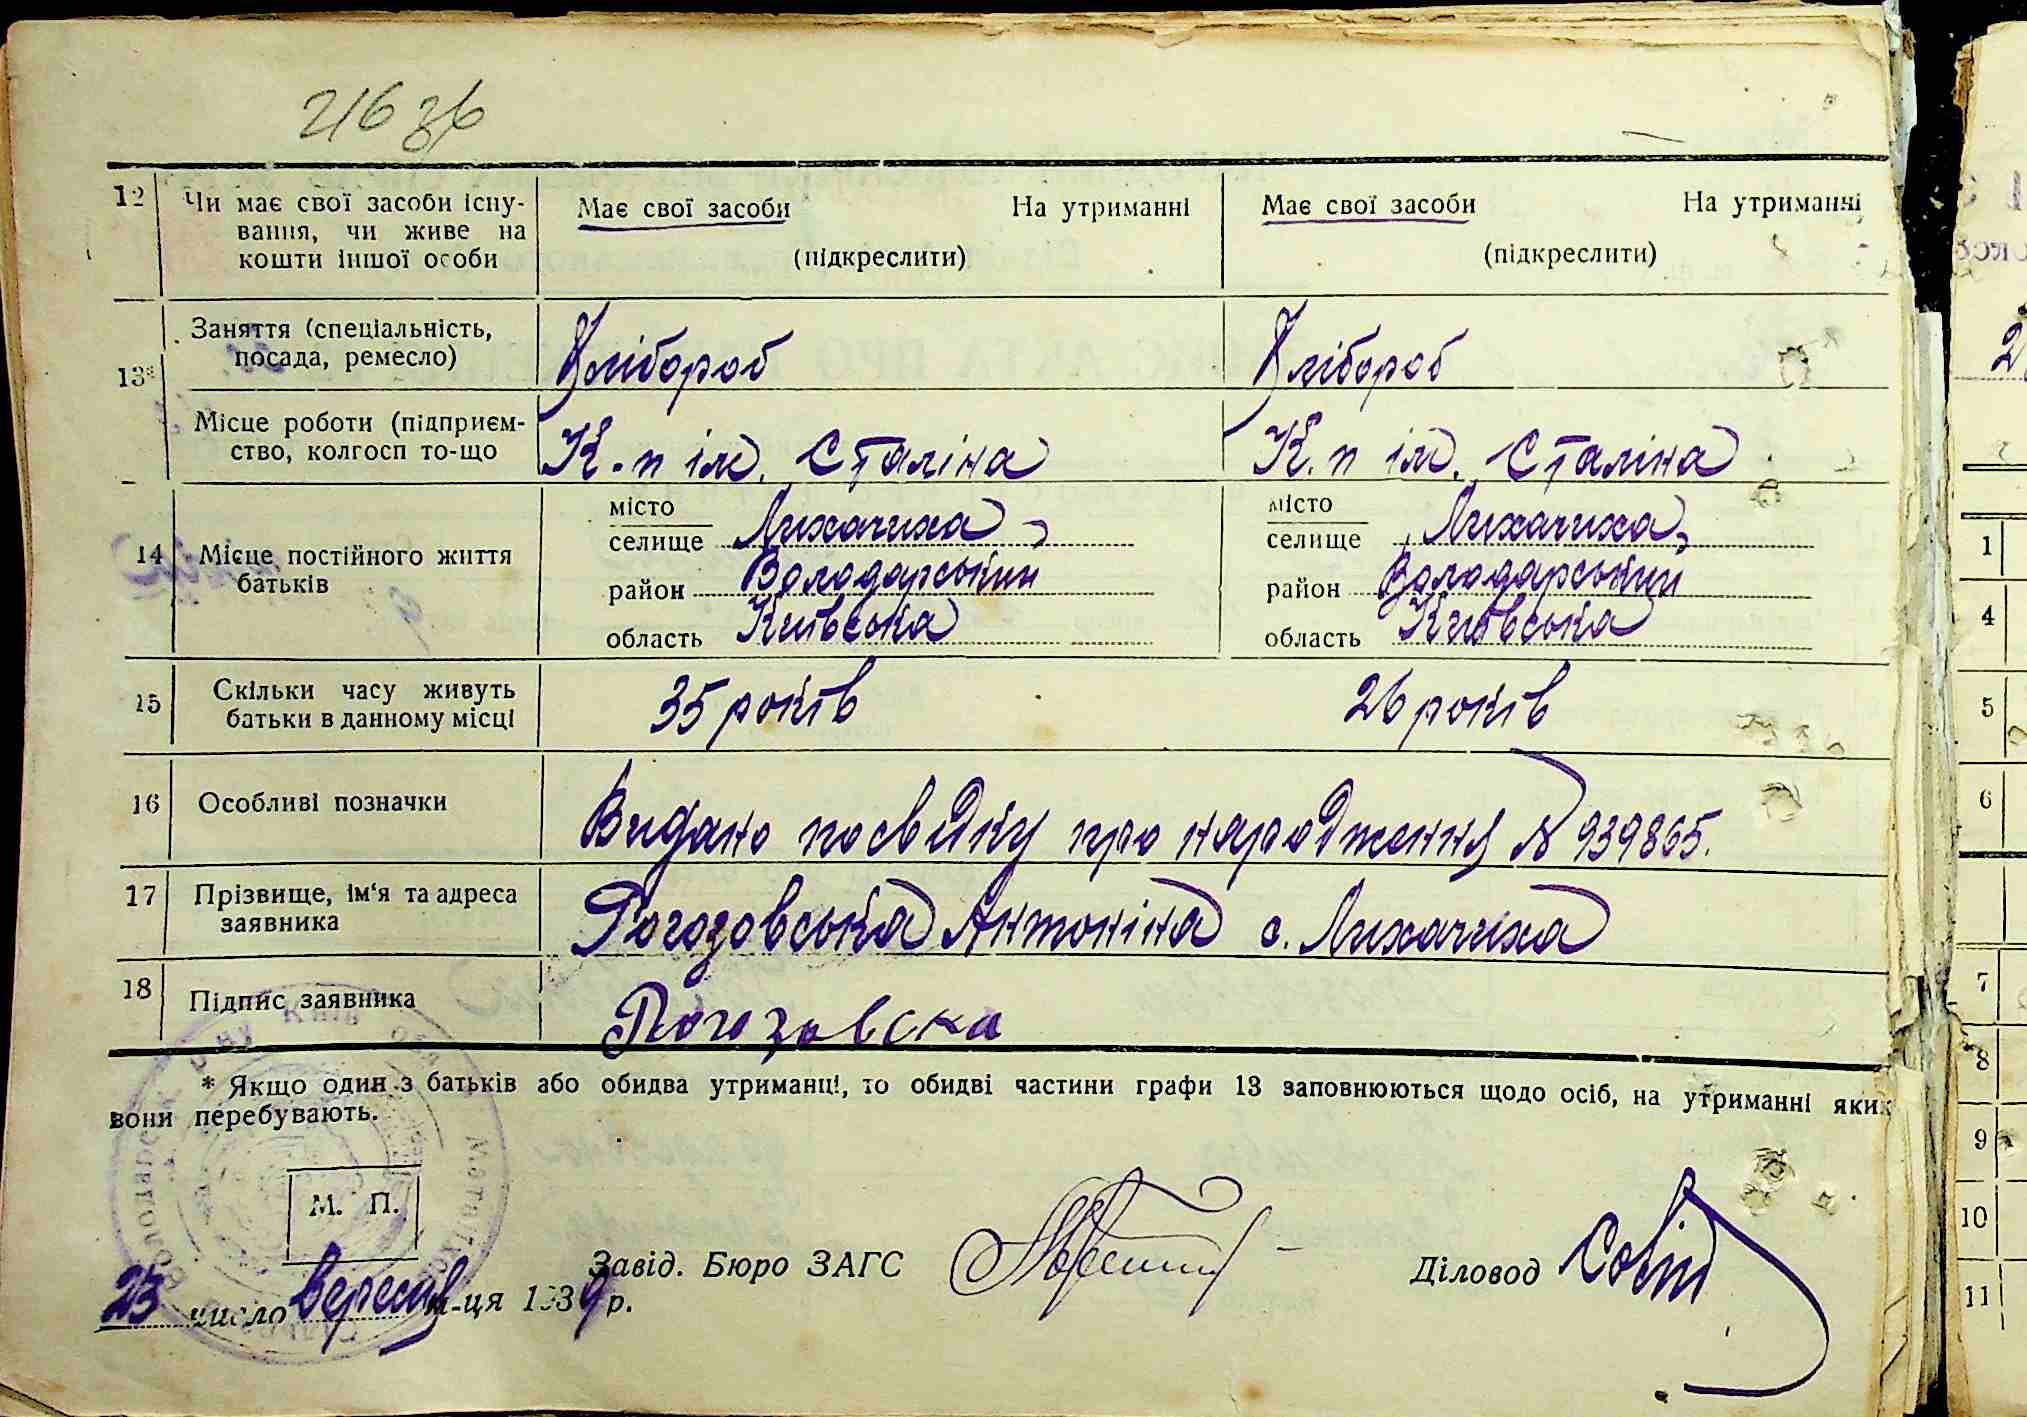 216 зв
12 Чи має свої засоби існу- Має свої засоби На утриманні Має свої засоби На утриманні
вання, чи живе на
кошти іншої особи (підкреслити) (підкреслити)
13* Заняття (спеціальність,
посада, ремесло) Хлібороб Хлібороб
Місце роботи (підприєм-
ство, колгосп то-що К-п ім. Сталіна К.п ім. Сталіна
14 Місце постійного життя
батьків
місто
селище Лихачиха, місто
селище Лихачиха,
район Володарський район Володарський
область Київська область Київська
15 Скільки часу живуть
батьки в данному місці 35 років 26 років
16 Особливі позначки Видано посвідку про народження № 939865.
17 Прізвище, ім'я та адреса
заявника Рогозовська Антоніна с. Лихачиха
18 Підпис заявника Рогозовска
* Якщо один з батьків або обидва утриманці, то обидві частини графи 13 заповнюються щодо осіб, на утриманні яких
вони перебувають.
М. П.
Завід. Бюро ЗАГС Діловод
23 число вересня м-ця 1939 р.
1
4
5
6
7
8
9
10
11